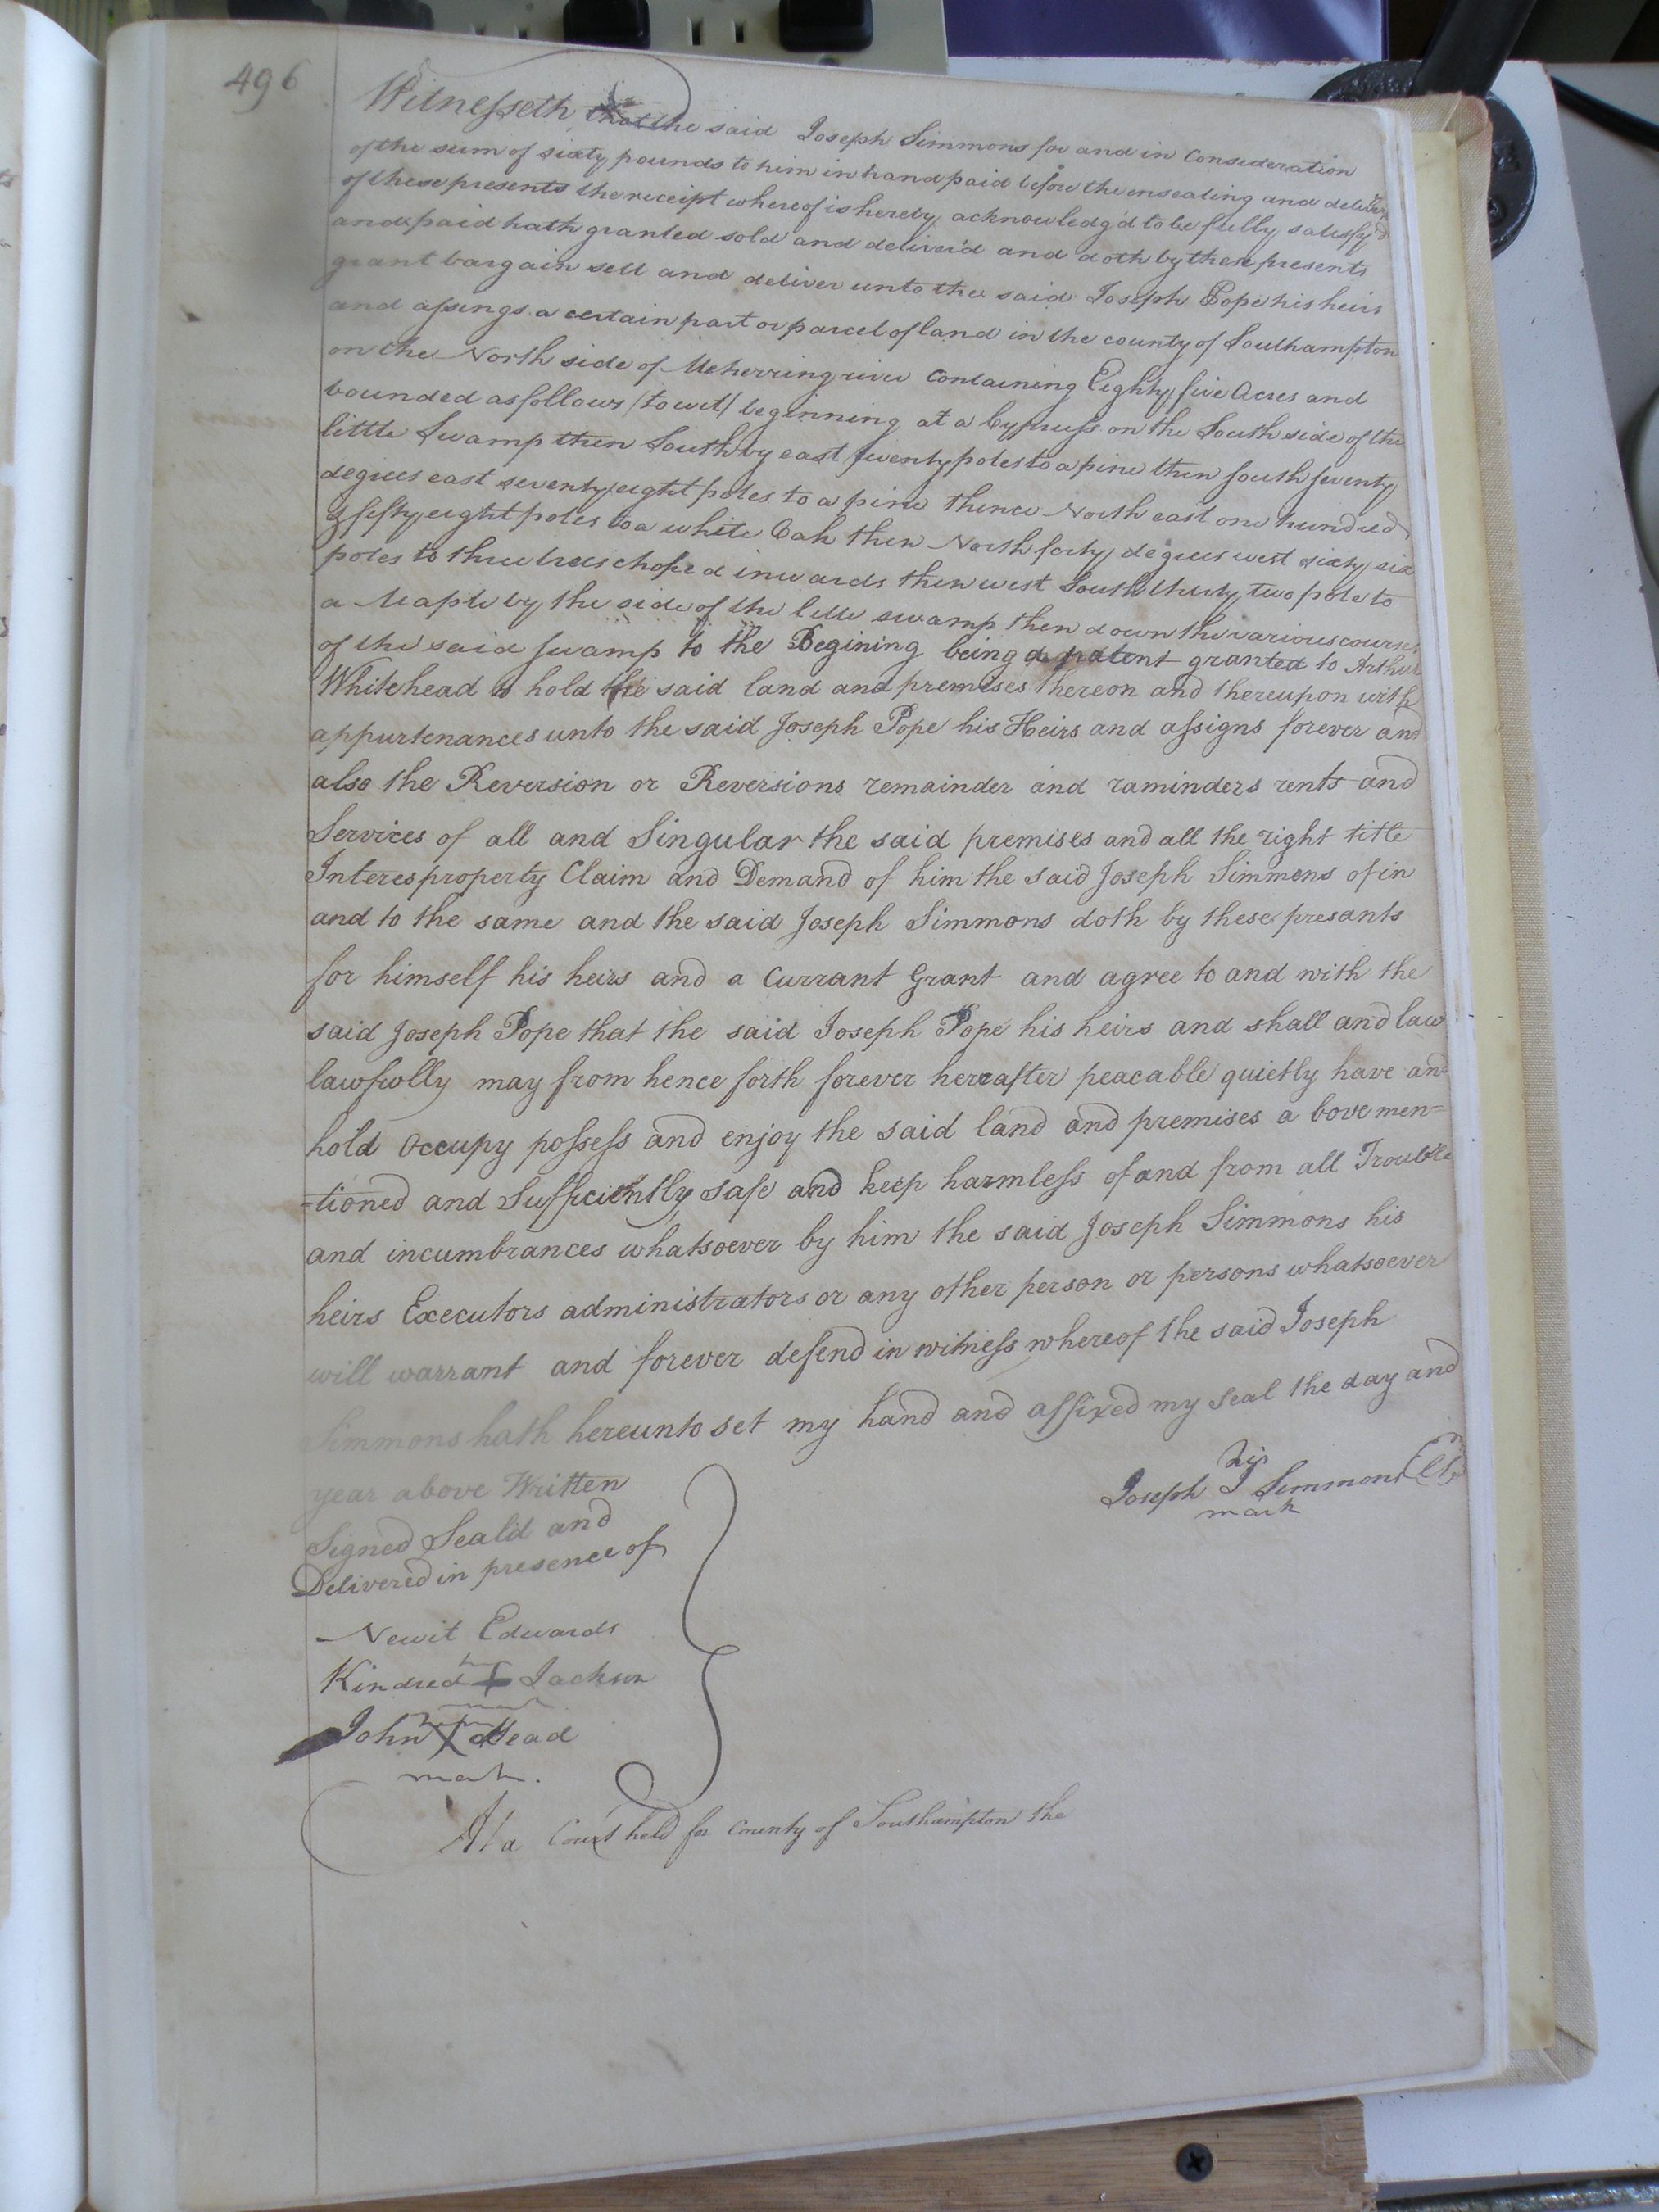 496
Witnesseth that the said Joseph Simmons for and in Consideration
of the sum of sixty pounds to him in hand paid before the ensealing and delivery
of these presents the receipt whereof is hereby acknowledg'd to be fully satisfy'd
and paid hath granted sold and deliver'd and doth by these presents
grant bargain sell and deliver unto the said Joseph Pope his heirs
and assings a certain part or parcel of land in the county of Southampton
on the North side of Meherring river Containing Eighty five Acres and
bounded as follows (to wit) beginning at a Cypruss on the South side of the
little Swamp then South by east twenty poles to a pine then south seventy
degrees east seventy eight poles to a pine thence North east one hundred
& fifty eight poles to a white Oak then North forty degrees west sixty six
poles to three trees chop'd inwards then west South thirty two pole to
a Maple by the side of the little swamp then down the various courses
of the said swamp to the Begining being a patent granted to Arthur
Whitehead to hold the said land and premises thereon and thereupon with
appurtenances unto the said Joseph Pope his Heirs and assigns forever and
also the Reversion or Reversions remainder and raminders rents and
Services of all and Singular the said premises and all the right title
Interes property Claim and Demand of him the said Joseph Simmons of in
and to the same and the said Joseph Simmons doth by these presants
for himself his heirs and a Currant Grant and agree to and with the
said Joseph Pope that the said Joseph Pope his heirs and shall and law
lawfwlly may from hence forth forever hereafter peacable quietly have and
hold occupy possess and enjoy the said land and premises a bove men=
=tioned and Sufficiently safe and keep harmless of and from all Trouble
and incumbrances whatsoever by him the said Joseph Simmons his
heirs Executors administrators or any other person or persons whatsoever
will warrant and forever defend in witness whereof the said Joseph
Simmons hath hereunto set my hand and affixed my seal the day and
year above Written
his
Joseph I Simmons (LS)
mark
Signed Seal'd and
Delivered in presence of
Newit Edwards
Kindred + Jackson
mark
John X Mead
mark.
At a Court held for County of Southampton the